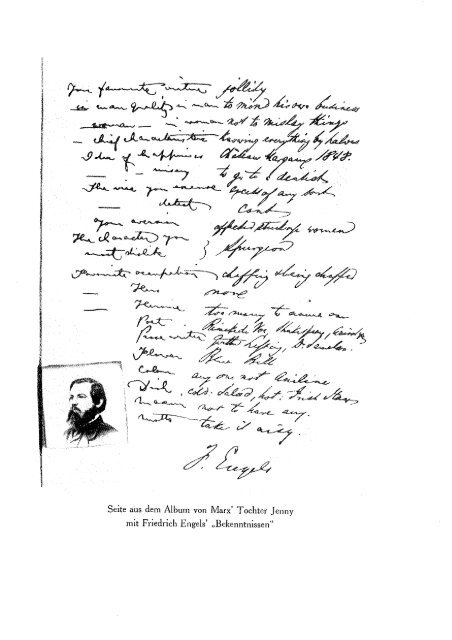 Your favourite virtue jollity
— in man quality in man to mind his own business
— woman — in woman not to mislay things
— chief characteristic knowing everything by halves
Idea of happiness Château Margaux 1848.
— " — misery to go to a dentist
The vice you excuse excess of any sort
— detest Cant
Your aversion affected stuckup women
The character you
most dislike } Spurgeon
Favourite occupation chaffing & being chaffed
— Hero none
— Heroine too many to name one
Poet Shakespeare,
Prose writer Lessing,
Flower Blue Bell
Color any one not Aniline
Dish cold: Salad, hot: Irish Stew
Maxim not to have any.
Motto take it aisy.
F. Engels
Seite aus dem Album von Marx' Tochter Jenny
mit Friedrich Engels' „Bekenntnissen"